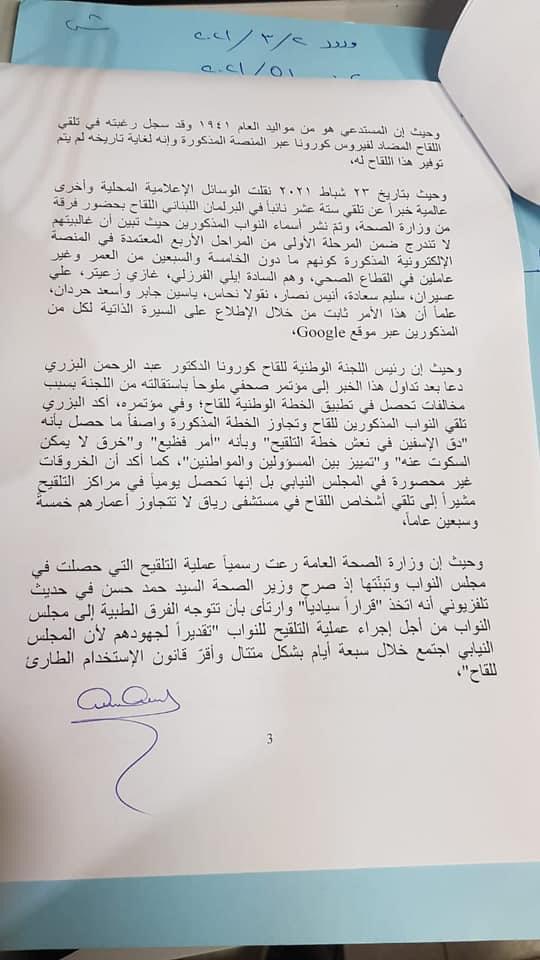 ورد ٢٠٢١/٣/٢
٢٠٢١/٥١
وحيث إن المستدعي هو من مواليد العام ١٩٤١ وقد سجل رغبته في تلقي
اللقاح المضاد لفيروس كورونا عبر المنصة المذكورة وإنه لغاية تاريخه لم يتم
توفير هذا اللقاح له،
وحيث بتاريخ ٢٣ شباط ٢٠٢١ نقلت الوسائل الإعلامية المحلية وأخرى
عالمية خبراً عن تلقي ستة عشر نائباً في البرلمان اللبناني اللقاح بحضور فرقة
من وزارة الصحة، وتمّ نشر أسماء النواب المذكورين حيث تبين أن غالبيتهم
لا تندرج ضمن المرحلة الأولى من المراحل الأربع المعتمدة في المنصة
الإلكترونية المذكورة كونهم ما دون الخامسة والسبعين من العمر وغير
عاملين في القطاع الصحي، وهم السادة إيلي الفرزلي، غازي زعيتر، علي
عسيران، سليم سعادة، أنيس نصار، نقولا نحاس، ياسين جابر وأسعد حردان،
علماً أن هذا الأمر ثابت من خلال الإطلاع على السيرة الذاتية لكل من
المذكورين عبر موقع Google،
وحيث إن رئيس اللجنة الوطنية للقاح كورونا الدكتور عبد الرحمن البزري
دعا بعد تداول هذا الخبر إلى مؤتمر صحفي ملوحاً باستقالته من اللجنة بسبب
مخالفات تحصل في تطبيق الخطة الوطنية للقاح؛ وفي مؤتمره، أكد البزري
تلقي النواب المذكورين للقاح وتجاوز الخطة المذكورة واصفاً ما حصل بأنه
"دق الإسفين في نعش خطة التلقيح" وبأنه "أمر فظيع" و"خرق لا يمكن
السكوت عنه" و"تمييز بين المسؤولين والمواطنين"، كما أكد أن الخروقات
غير محصورة في المجلس النيابي بل إنها تحصل يومياً في مراكز التلقيح
مشيراً إلى تلقي أشخاص اللقاح في مستشفى رياق لا تتجاوز أعمارهم خمسة
وسبعين عاماً،
وحيث إن وزارة الصحة العامة رعت رسمياً عملية التلقيح التي حصلت في
مجلس النواب وتبنّتها إذ صرح وزير الصحة السيد حمد حسن في حديث
تلفزيوني أنه اتخذ "قراراً سيادياً" وارتأى بأن تتوجه الفرق الطبية إلى مجلس
النواب من أجل إجراء عملية التلقيح للنواب "تقديراً لجهودهم لأن المجلس
النيابي اجتمع خلال سبعة أيام بشكل متتال وأقرّ قانون الإستخدام الطارئ
للقاح"،
3